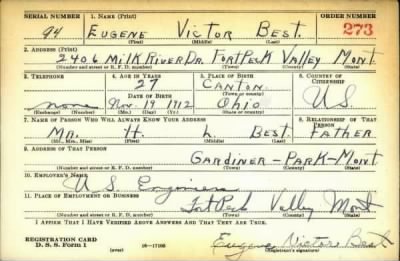 SERIAL NUMBER 1. NAME (Print) ORDER NUMBER
94 EUGENE VICTOR BEST. 273
(First) (Middle) (Last)
2. ADDRESS (Print)
2406 MILK RIVER DR. FORT PECK VALLEY MONT.
(Number and street or R. F. D. number) (Town) (County) (State)
3. TELEPHONE 4. AGE IN YEARS 5. PLACE OF BIRTH 6. COUNTRY OF CITIZENSHIP
27 CANTON
DATE OF BIRTH (Town or county)
none Nov. 19 1912 Ohio U.S.
(Exchange) (Number) (Mo.) (Day) (Yr.) (State or country)
7. NAME OF PERSON WHO WILL ALWAYS KNOW YOUR ADDRESS 8. RELATIONSHIP OF THAT PERSON
MR. H. L. BEST FATHER
(Mr., Mrs., Miss) (First) (Middle) (Last)
9. ADDRESS OF THAT PERSON
GARDINER - PARK - MONT
(Number and street or R. F. D. number) (Town) (County) (State)
10. EMPLOYER'S NAME
U S Engineers
11. PLACE OF EMPLOYMENT OR BUSINESS
Fort Peck Valley Mont
(Number and street or R. F. D. number) (Town) (County) (State)
I AFFIRM THAT I HAVE VERIFIED ABOVE ANSWERS AND THAT THEY ARE TRUE.
REGISTRATION CARD
D. S. S. Form 1 (over) 16—17105 Eugene Victor Best
(Registrant's signature)